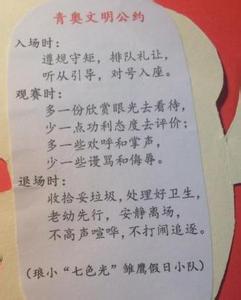 青奥文明公约
入场时：
遵规守矩，排队礼让，
听从引导，对号入座。
观赛时：
多一份欣赏眼光去看待，
少一点功利态度去评价；
多一些欢呼和掌声，
少一些谩骂和侮辱。
退场时：
收拾妥垃圾，处理好卫生，
老幼先行，安静离场，
不高声喧哗，不打闹追逐。
（琅小“七色光”雏鹰假日小队）